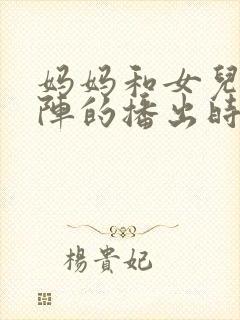 妈妈和女兒
陣的播出時
楊貴妃